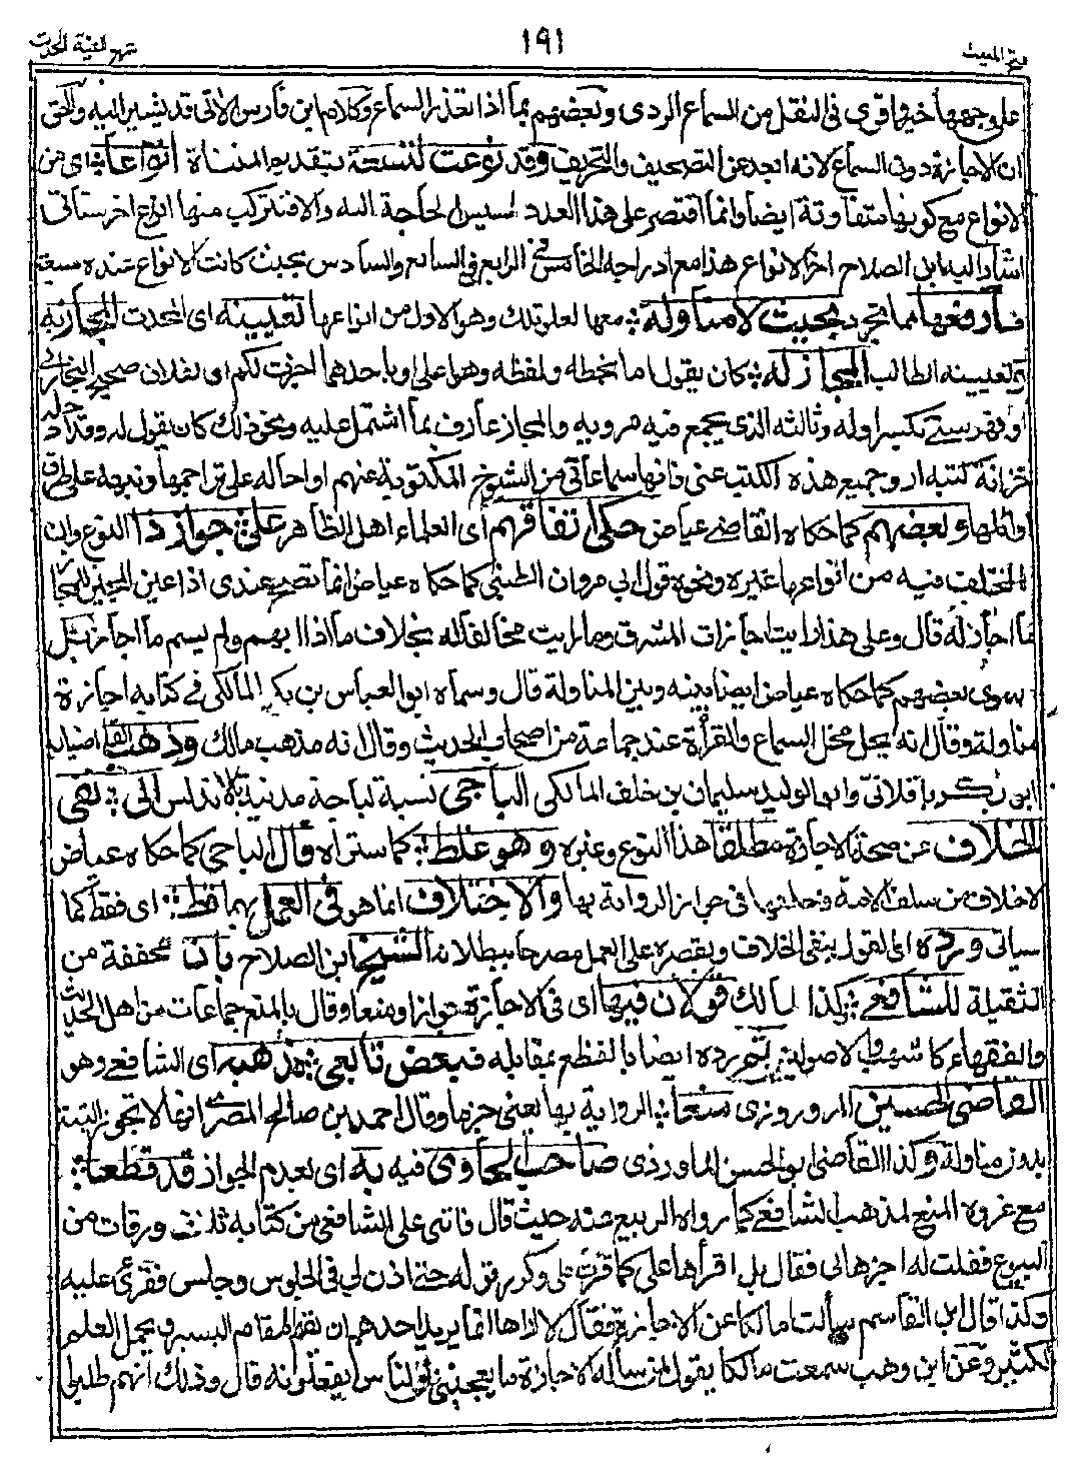 فتح المغيث ١٩١ شرح الفية الحديث
على وجهها خير واقوى فى النقل من السماع الردى وبعضهم بما اذا تعذر السماع وكلام ابن فارس الاتى قد يشير اليه والحق
ان الاجازة دون السماع لانه ابعد عن التصحيف والتحريف وقد نوعت لتسعة بتقديم المثناة انواعا اى من
الانواع مع كونها متفاوتة ايضا وانما اقتصر على هذا العدد لمسيس الحاجة اليه والا فتتركب منها انواع اخر ستأتى
اشار اليه ابن الصلاح اخر الانواع هذا مع ادراجه الخامس فى الرابع والسابع فى السادس بحيث كانت الانواع عنده سبعة
فارفعها مما تجرد بحيث لا مناوله معها لعلو تلك وهو الاول من انواعها تعيينه اى المحدث المجاز به
وتعيينه الطالب المجاز له كان يقول اما بخطه ولفظه وهو اعلى او باحدهما اجزت لكم او لفلان صحيح البخارى
او فهرستى بكسر اوله وثالثه الذى يجمع فيه مرويه والمجاز عارف بما اشتمل عليه ونحو ذلك كان يقول له وقد ادخله
خزانة كتبه ارو جميع هذه الكتب عنى فانها سماعاتى من الشيوخ المكتوبة عنهم او احاله على تراجمها ونبهه على طرق
اوائلها وبعضهم كما حكاه القاضى عياض حكى اتفاقهم اى العلماء اهل الظاهر على جواز ذا النوع وان
المختلف فيه من انواعها غيره ونحوه قول ابى مروان الطبنى كما حكاه عياض انما تصح عندى اذا عين المجيز للمجاز
ما اجاز له قال وعلى هذا رايت اجازات المشرق وما رايت مخالفا له بخلاف ما اذا ابهم ولم يسم ما اجاز بل
سوى بعضهم كما حكاه عياض ايضا بينه وبين المناولة قال وسماه ابو العباس بن بكر المالكى فى كتابه اجازة
مناولة وقال انه يحل محل السماع والقراءة عند جماعة من اصحاب الحديث وقال انه مذهب مالك وذهب القاضيان
ابو بكر باقلانى وابو الوليد سليمان بن خلف المالكى الباجى نسبة لباجة مدينة بالاندلس الى نفى
الخلاف عن صحة الاجازة مطلقا هذا النوع وغيره وهو غلط كما ستراه قال الباجى كما حكاه عياض
لا خلاف من سلف الامة وخلفها فى جواز الرواية بها والاختلاف انما هو فى العمل بها فقط اى فقط كما
سياتى ورده اى القول بنفى الخلاف وبقصره على العمل مصرحا ببطلانه الشيخ ابن الصلاح بان مخففة من
الثقيلة للشافعى وكذا لمالك قولان فيها اى فى الاجازة جوازا ومنعا وقال بالمنع جماعات من اهل الحديث
والفقهاء والاصوليين ثم رده ايضا بالقطع بمقابله فبعض تابعى مذهبه اى الشافعى وهو
القاضى الحسين المروروزى منعا الرواية بها يعنى جزما وقال احمد بن صالح المصرى انها لا تجوز البتة
بدون مناولة وكذا القاضى ابو الحسن الماوردى صاحب الحاوى فيه به اى بعدم الجواز قد قطعا
مع عزوه المنع لمذهب الشافعى كما رواه الربيع عنه حيث قال فاتنى على الشافعى من كتابه ثلث ورقات من
البيوع فقلت له اجزها لى فقال بل اقرأها على كما قرئت على وكرر قوله حتى اذن لى فى الجلوس وجلس فقرئ عليه
وكذا قال ابن القاسم سألت مالكا عن الاجازة فقال لا اراها انما يريد احدهم ان يقيم المقام اليسير ويحمل العلم
الكثير وعن ابن وهب سمعت مالكا يقول لمن سأله الاجازة ما يعجبنى وان الناس يفعلونه قال وذلك انهم طلبوا